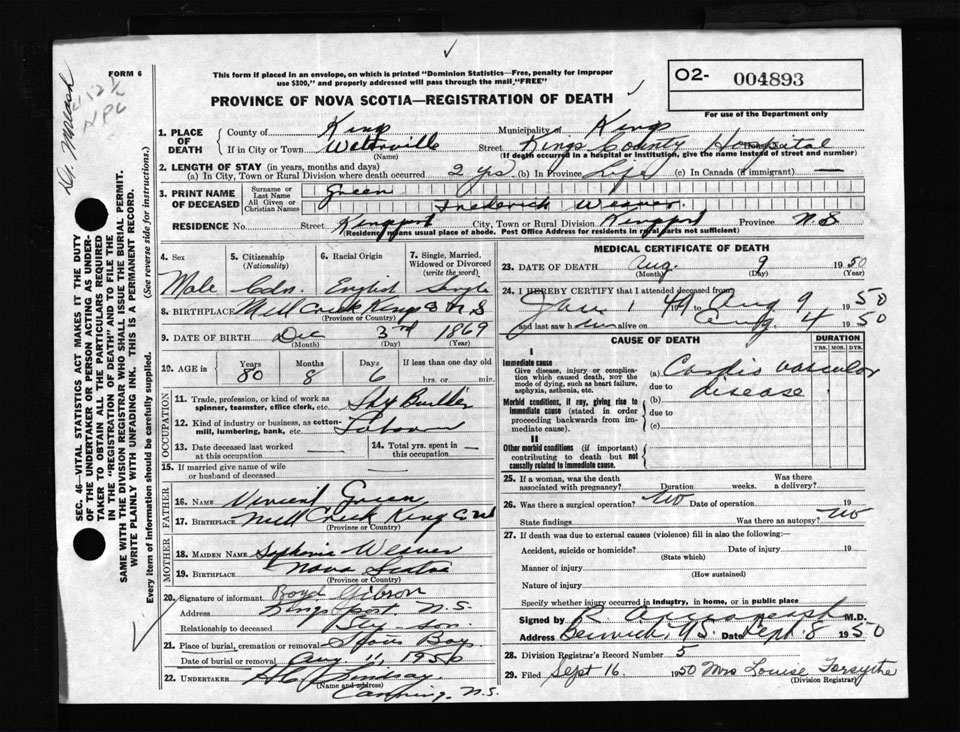 FORM 6
This form if placed in an envelope, on which is printed "Dominion Statistics—Free, penalty for improper
use $300," and properly addressed will pass through the mail "FREE"
O2- 004893
For use of the Department only
PROVINCE OF NOVA SCOTIA—REGISTRATION OF DEATH
1. PLACE OF DEATH County of Kings Municipality of Kings
If in City or Town Waterville Street Kings County Hospital
(Name) (If death occurred in a hospital or institution, give the name instead of street and number)
2. LENGTH OF STAY (in years, months and days)
(a) In City, Town or Rural Division where death occurred 2 yrs (b) In Province Life (c) In Canada (if immigrant) —
3. PRINT NAME OF DECEASED Surname or Last Name Green
All Given or Christian Names Frederick Weaver
RESIDENCE No. Street Kingsport City, Town or Rural Division Kingsport Province N.S
(Residence means usual place of abode. Post Office Address for residents in rural parts not sufficient)
4. Sex 5. Citizenship (Nationality) 6. Racial Origin 7. Single, Married, Widowed or Divorced (write the word)
Male Cdn. English Single
8. BIRTHPLACE Mill Creek Kings N S
(Province or Country)
9. DATE OF BIRTH Dec 3rd 1869
(Month) (Day) (Year)
10. AGE in Years Months Days If less than one day old
80 8 6 hrs. or min.
OCCUPATION
11. Trade, profession, or kind of work as spinner, teamster, office clerk, etc. Ship Builder
12. Kind of industry or business, as cotton-mill, lumbering, bank, etc.
13. Date deceased last worked at this occupation — 14. Total yrs. spent in this occupation —
15. If married give name of wife or husband of deceased —
FATHER
16. NAME Vincent Green
17. BIRTHPLACE Mill Creek Kings
(Province or Country)
MOTHER
18. MAIDEN NAME Sophonia Weaver
19. BIRTHPLACE Nova Scotia
(Province or Country)
20. Signature of informant Boyd Gibson
Address Kingsport N.S.
Relationship to deceased Step-son.
21. Place of burial, cremation or removal Bay
Date of burial or removal Aug 11, 1950
22. UNDERTAKER Lindsay
(Name and address) Canning, N.S.
MEDICAL CERTIFICATE OF DEATH
23. DATE OF DEATH Aug. 9 1950
(Month) (Day) (Year)
24. I HEREBY CERTIFY that I attended deceased from
Jan 1 49 Aug 9 1950
and last saw him alive on Aug 4 1950
CAUSE OF DEATH DURATION
YRS. MOS. DYS.
I
Immediate cause
Give disease, injury or complication which caused death, NOT the mode of dying, such as heart failure, asphyxia, asthenia, etc.
(a) Cardio vascular
due to disease
Morbid conditions, if any, giving rise to immediate cause (stated in order proceeding backwards from immediate cause).
(b)
due to
(c)
II
Other morbid conditions (if important) contributing to death but not causally related to immediate cause.
25. If a woman, was the death associated with pregnancy? Duration weeks. Was there a delivery?
26. Was there a surgical operation? No Date of operation 19
State findings Was there an autopsy? No
27. If death was due to external causes (violence) fill in also the following:—
Accident, suicide or homicide? Date of injury 19
(State which)
Manner of injury
(How sustained)
Nature of injury
Specify whether injury occurred in industry, in home, or in public place
Signed by M.D.
Address Berwick, N.S. Date Sept. 8 1950
28. Division Registrar's Record Number 5
29. Filed Sept 16 1950 Mrs Louise Forsythe
(Division Registrar)
SEC. 46—VITAL STATISTICS ACT MAKES IT THE DUTY
OF THE UNDERTAKER OR PERSON ACTING AS UNDER-
TAKER TO OBTAIN ALL THE PARTICULARS REQUIRED
IN THE "REGISTRATION OF DEATH" AND TO FILE THE
SAME WITH THE DIVISION REGISTRAR WHO SHALL ISSUE THE BURIAL PERMIT.
WRITE PLAINLY WITH UNFADING INK. THIS IS A PERMANENT RECORD.
Every item of information should be carefully supplied. (See reverse side for instructions.)